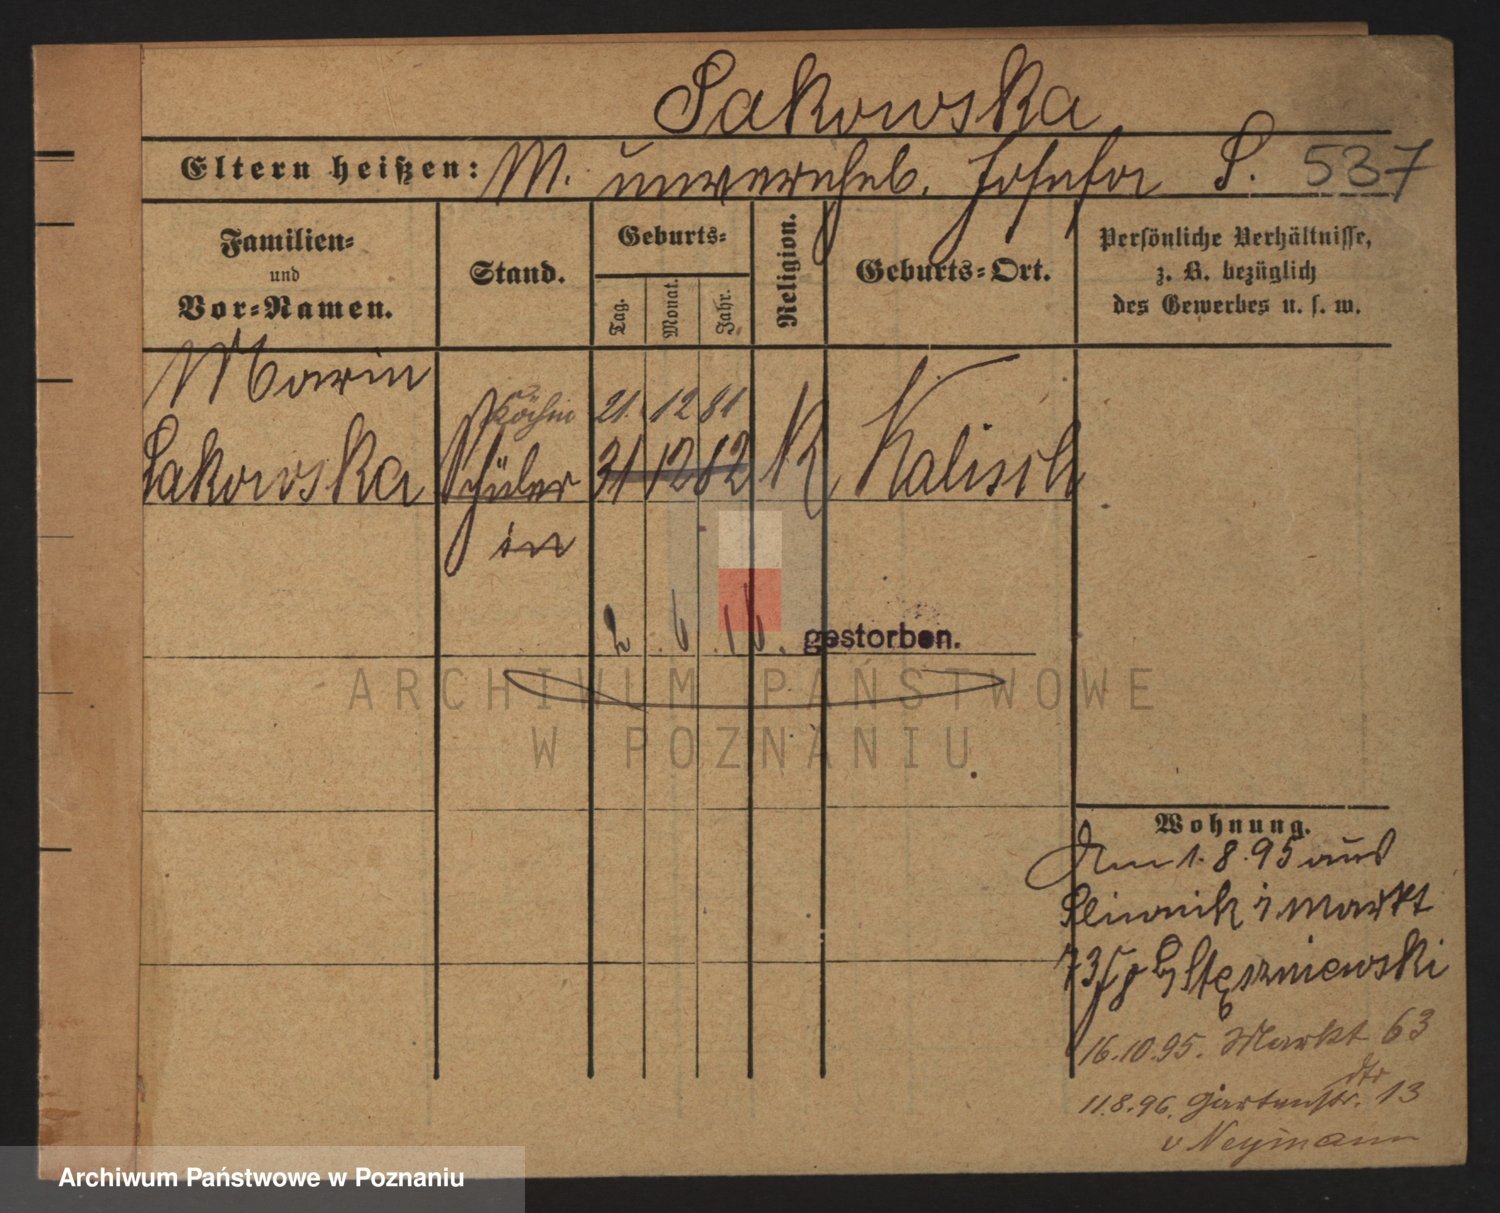 Sakowska
Eltern heißen: M. unvereheb. Josefa S. 537
Familien=
und
Vor=Namen.
Stand.
Geburts=
Tag.
Monat.
Jahr.
Religion.
Geburts=Ort.
Persönliche Verhältnisse,
z. B. bezüglich
des Gewerbes u. s. w.
Marie
Köchin 21. 12 81
Sakowska Schüler 31 12 82 K Kalisch
in
2. 6. 16. gestorben.
ARCHIWUM PAŃSTWOWE
W POZNANIU
Wohnung.
Am 1. 8. 95 aus
Markt
73
16.10.95. Markt 63
dto
11.8.96. Gartenstr. 13
v Neymann
Archiwum Państwowe w Poznaniu